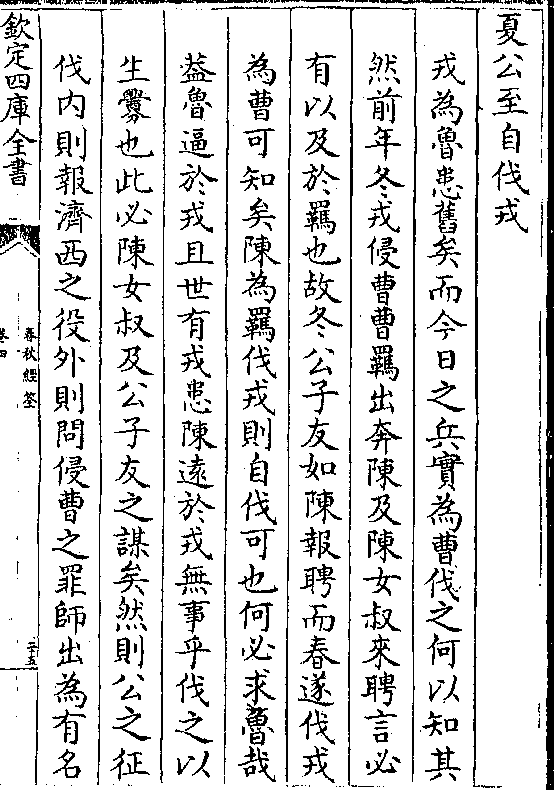 夏公至自伐戎
戎為魯患舊矣而今日之兵實為曹伐之何以知其
然前年冬戎侵曹曹羈出奔陳及陳女叔來聘言必
有以及於羈也故冬公子友如陳報聘而春遂伐戎
為曹可知矣陳為羈伐戎則自伐可也何必求魯哉
葢魯逼於戎且世有戎患陳遠於戎無事乎伐之以
生釁也此必陳女叔及公子友之謀矣然則公之征
伐内則報濟西之役外則問侵曹之罪師出為有名
欽定四庫全書
春秋經筌
卷四
三十五